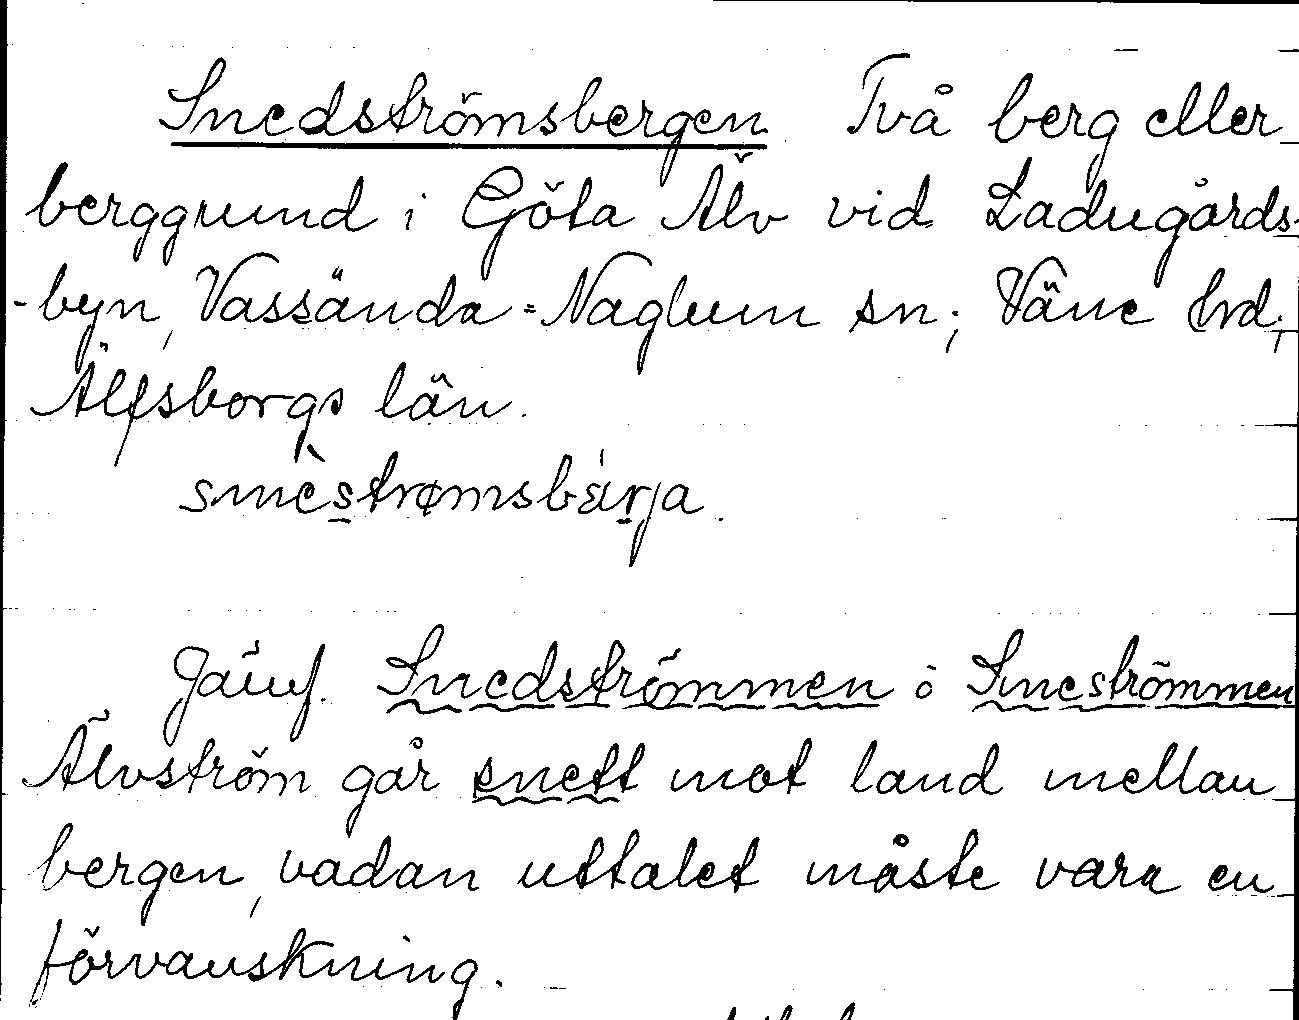 Snedströmsbergen Två berg eller
berggrund i Göta Älv vid Ladugårds-
-byn, Vassända-Naglum sn; Väne hd;
Älfsborgs län.
smèstrømsbárja.
Jämf. Snedströmmen o Smeströmmen
Älvström går snett mot land mellan
bergen, vadan uttalet måste vara en
förvanskning.